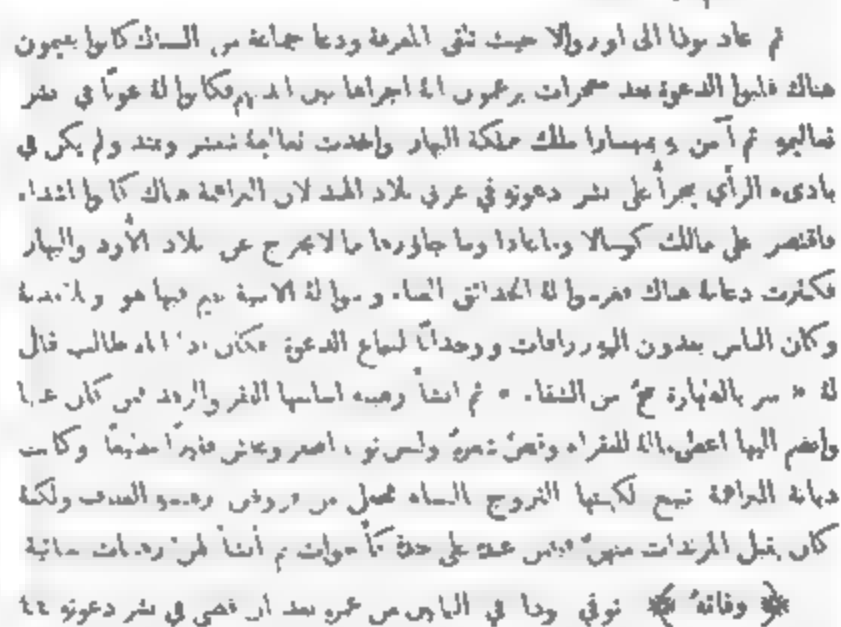 ثم عاد بوذا الى اوروالا حيث تلقى المعرفة ودعا جماعة من النساك كانوا يقيمون
هناك فلبوا الدعوة بعد معجزات يزعمون انه اجراها بين ايديهم فكانوا له عونًا في نشر
تعاليمه ثم آمن به بمبسارا ملك مملكة البهار واخذت تعاليمه تنتشر وتمتد ولم يكن في
بادىء الرأي يجرأ على نشر دعوته في غربي بلاد الهند لان البراهمة هناك كانوا اشداء
فاقتصر على ممالك كوسالا وما جاورها مما لا يخرج عن بلاد الأود والبهار
فكثرت دعاته هناك فغرسوا له الحدائق الغناء وبنوا له الابنية يقيم فيها هو وتلامذته
وكان الناس يفدون اليه زرافات ووحدانًا لسماع الدعوة فكان اذا اتاه طالب قال
له « سر بالطهارة تنج من الشقاء » ثم انشأ رهبنة اساسها الفقر والزهد فمن كان غنيا
وانضم اليها اعطى ماله للفقراء وقص شعره ولبس ثوبا اصفر وعاش فقيرًا
ديانة البراهمة تبيح لكهنتها التزوج بالنساء فجعل من فروض رهبنته العفة ولكنه
كان يقبل المرتدات منهن فيعشن على حدة كأخوات ثم أنشأ لهن رهبنات نسائية
﴿ وفاته ﴾ توفي بوذا في الثمانين من عمره بعد ان قضى في نشر دعوته ٤٤